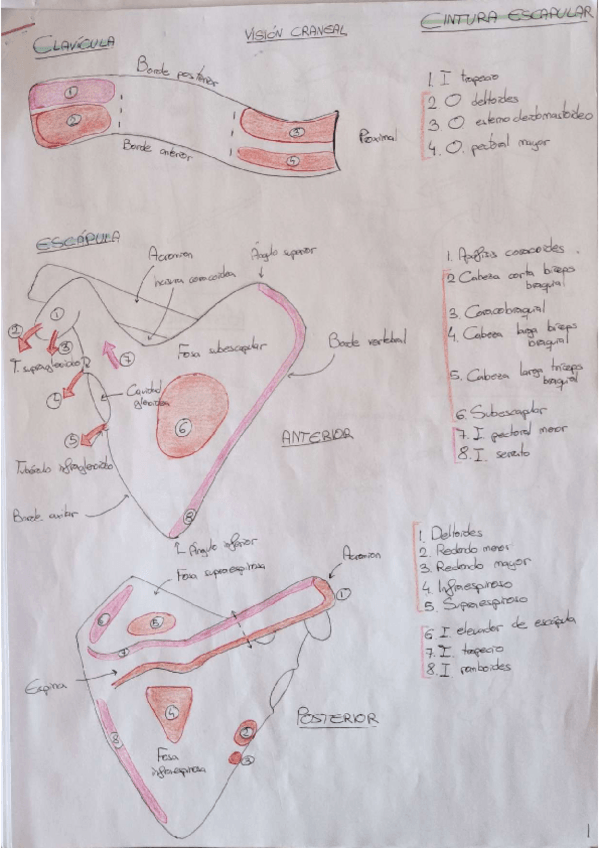 CINTURA ESCAPULAR
CLAVÍCULA
VISIÓN CRANEAL
Borde posterior
1
2
3
5
Borde anterior
Proximal
1. I trapecio
2 O deltoides
3 O esternocleidomastoideo
4. O. pectoral mayor
ESCÁPULA
Acromion
Incisura coracoidea
Ángulo superior
1
2
3
7
T. supraglenoideo
Fosa subescapular
Borde vertebral
Cavidad
glenoidea
6
5
ANTERIOR
Tubérculo infraglenoideo
Borde axilar
8
Ángulo inferior
1. Apófisis coracoides.
2 Cabeza corta bíceps
braquial
3. Coracobraquial
4. Cabeza larga bíceps
braquial
5. Cabeza larga tríceps
braquial
6. Subescapular
7. I pectoral menor
8. I. serrato
Fosa supraespinosa
Acromion
1
6
5
7
Espina
4
8
2
3
Fosa
infraespinosa
POSTERIOR
1. Deltoides
2. Redondo menor
3. Redondo mayor
4. Infraespinoso
5. Supraespinoso
6 I. elevador de escápula
7. I. trapecio
8. I romboides
1